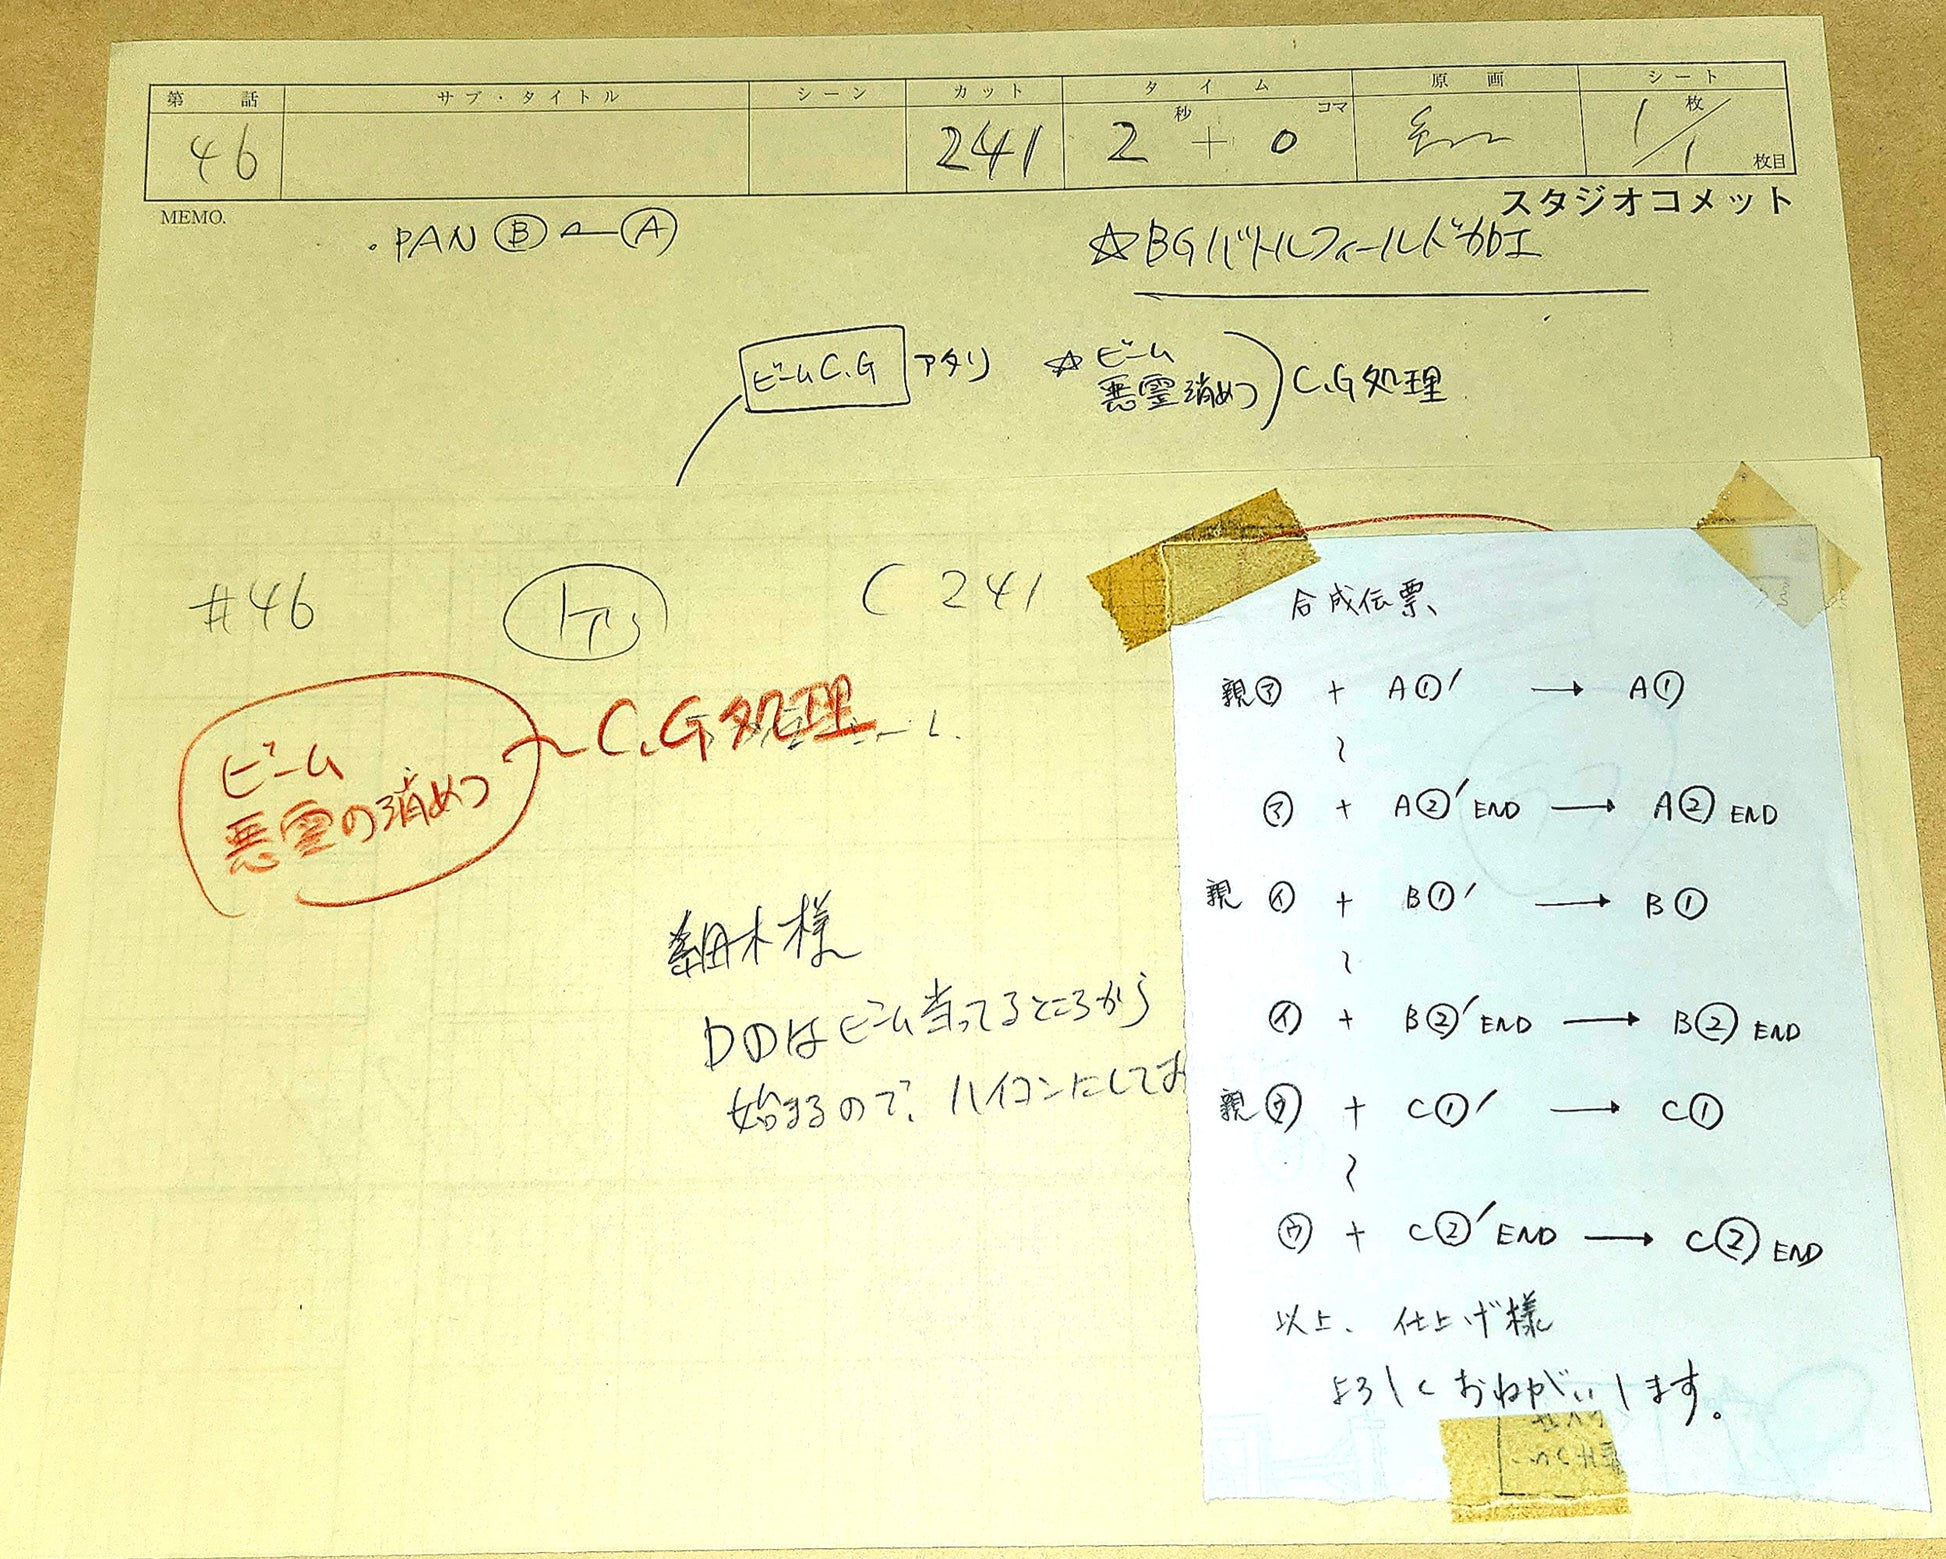 第 話 サブ・タイトル シーン カット タイム 原画 シート
46 241 2 秒 + 0 コマ 1 枚 / 1 枚目
MEMO. スタジオコメット
・PAN Ⓑ ← Ⓐ
☆BGバトルフィールド加工
ビームC.G アタリ
☆ビーム
悪霊消めつ
C.G処理
#46 C 241
ビーム
悪霊の消めつ
C.G処理
細木様
DDはビーム当ってるところから
始まるので、ハイコンにしてお
合成伝票
親㋐ + A①' → A①
〜
㋐ + A②' END → A② END
親㋑ + B①' → B①
〜
㋑ + B②' END → B② END
親㋒ + C①' → C①
〜
㋒ + C②' END → C② END
以上、仕上げ様
よろしくおねがいします。